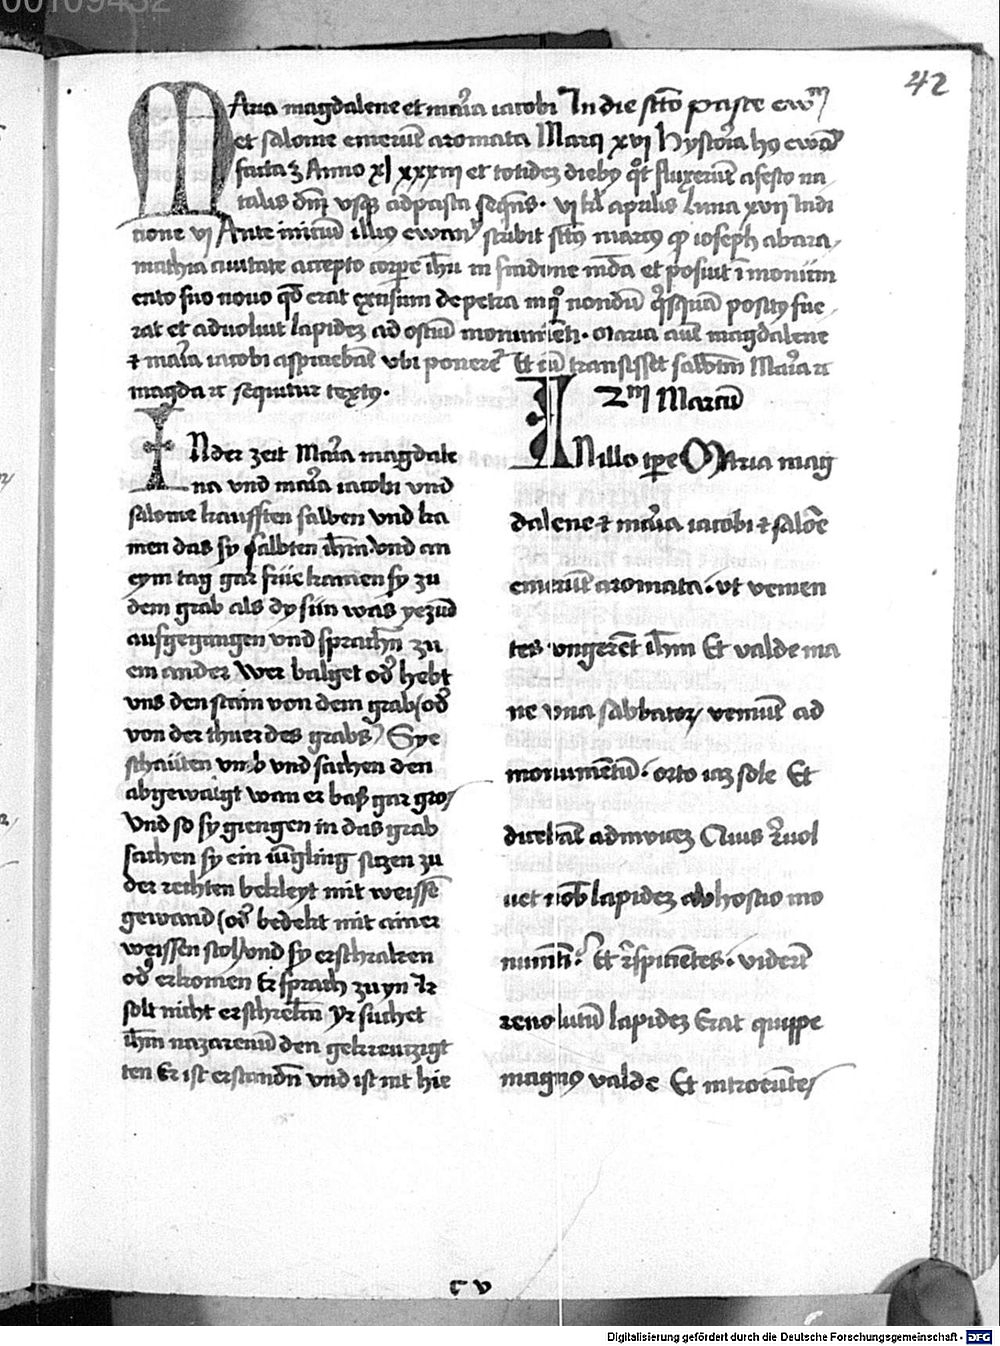 00109432
42
Maria magdalene et maria iacobi In die scto pasce ewm
et salome emerūt aromata Marci xvi Hystoria hꝰ ewā
facta ꝫ Anno xl xxxiiii et totidez diebꝰ qͦt fluxerūt a festo na
talis dm̄ vsqꝫ ad pasca seqēns · vi kl̄ aprilis Luna xvii Indi
ctione vi Ante iniciū illiꝰ ewan scribit sctꝰ marcꝰ ꝙ ioseph abara
mathia ciuitate accepto corpe ihū in sindone mūda et posiut ī monüm
ento suo nouo qd̄ erat excisum de petra in qͦ nondū qͥsquā positꝰ fue
rat et aduoluit lapidez ad ostiū monumēti · Maria aūt magdalene
⁊ maria iacobi aspiciebāt vbi poneret Et cū transisset sabbm̄ Maria ⁊c
magda ⁊c sequitur textꝰ ·
IN der zeit Maria magdale
na vnd maria iacobi vnd
salome kaufften salben vnd ka
men das sy salbten ihm vnd an
eym tag gar frue kamen sy zu
dem grab als dy sun was yezūd
aufgegangen vnd sprachn̄ zu
ein ander Wer balget od̄ hebt
vns den stain von dem grab (od̄
von der thuer des grabs) Sye
schauten vmb vnd sachen den
abgewalgt wan er baß gar gros
Vnd so sy giengen in das grab
sachen sy ein iūgling sitzen zu
der rechten bekleyt mit weissē
gewand (od̄ bedekt mit ainer
weissen stol) vnd sy erschraken
od̄ erkomen Er sprach zu yn Ir
solt nicht erschreken Yr suchet
ihm nazarenū den gekreuzigt
ten Er ist erstandn̄ vnd ist nit hie
2m Marcū
IN illo tpe Maria mag
dalene ⁊ maria iacobi ⁊ salōe
emerūt aromata · vt venien
tes vngerēt ihm Et valde ma
ne vna sabbatoꝝ veniūt ad
monumētū · orto iaꝫ sole Et
dicebāt adinuicez Quis reuol
uet nob̄ lapidez ab hostio mo
numēti? Et respiciētes · viderūt
reuolutū lapidez Erat quippe
magnꝰ valde Et introeūtes
c v
Digitalisierung gefördert durch die Deutsche Forschungsgemeinschaft - DFG